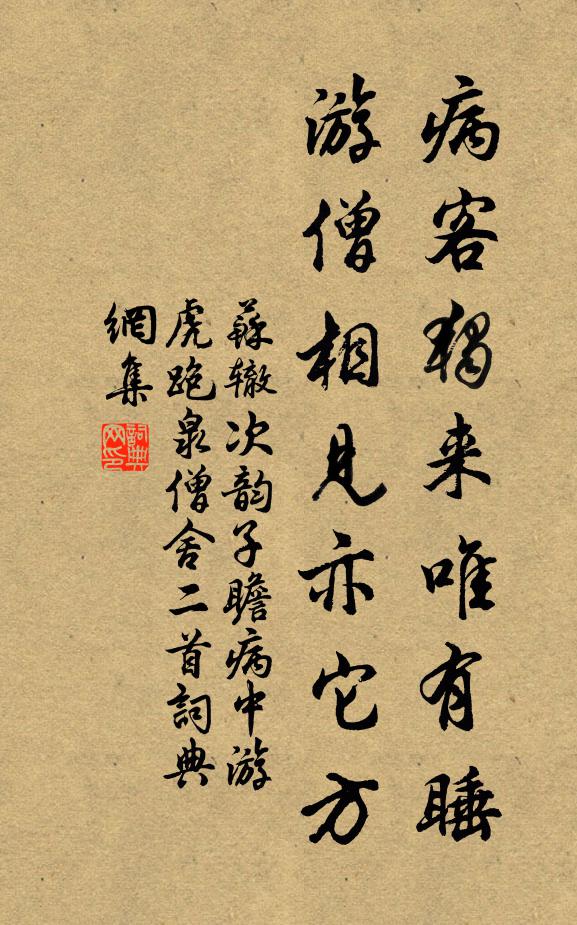 病客獨来唯有睡
游僧相見亦它方
蘇辙次韵子瞻病中游
虎跑泉僧舍二首詞典
網集
詞典
网印